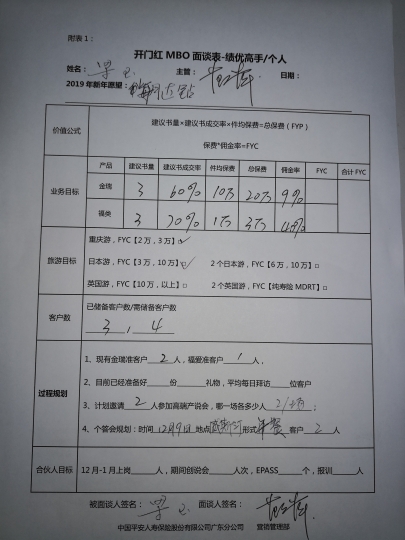 附表1：
开门红MBO面谈表-绩优高手/个人
姓名： 主管： 日期：
2019年新年愿望： 达钻
价值公式
建议书量×建议书成交率×件均保费=总保费（FYP）
保费*佣金率=FYC
业务目标
产品 建议书量 建议书成交率 件均保费 总保费 佣金率 FYC 合计FYC
金瑞 3 60% 10万 20万 9%
福类 3 70% 1万 3万 40%
旅游目标
重庆游，FYC【2万，3万】☑
日本游，FYC【3万，10万】☑ 2个日本游，FYC【6万，10万】□
英国游，FYC【10万，以上】□ 2个英国游，FYC【纯寿险MDRT】□
客户数
已储备客户数/需储备客户数
3，4
过程规划
1、现有金瑞准客户2人，福爱准客户1人，
2、目前已经准备好 份 礼物，平均每日拜访 位客户
3、计划邀请2人参加高端产说会，哪一场各多少人 ；
4、个答会规划：时间12月9日 地点 形式 客户2人
合伙人目标
12月-1月上岗 人，期间创说会 人次，EPASS 个，报训 人
被面谈人签名： 面谈人签名：
中国平安人寿保险股份有限公司广东分公司 营销管理部